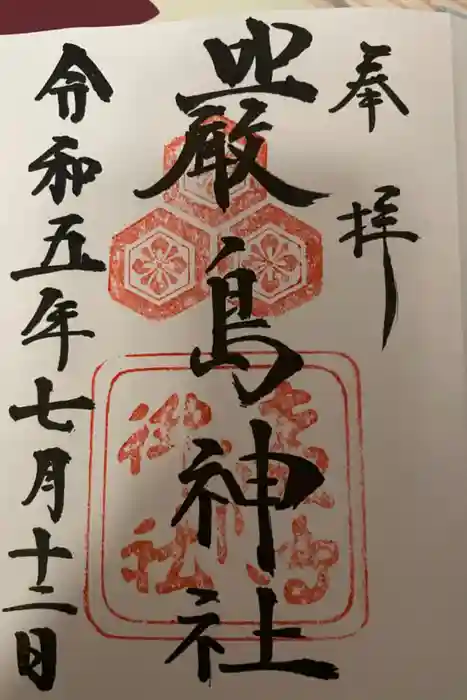 奉拝
嚴島神社
令和五年七月十二日